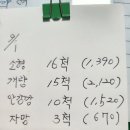 9/1
소형 16척 (1,390)
개량 15척 (2,120)
안강망 10척 (1,520)
자망 3척 (670)